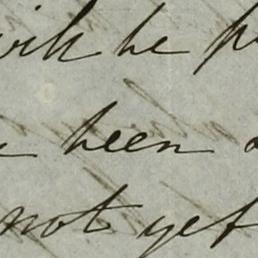 will be
been
not yet